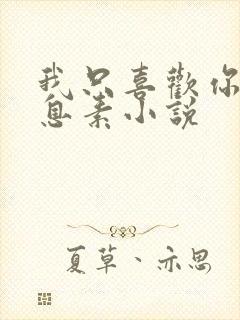 我只喜歡你
息素小說
夏草、亦思